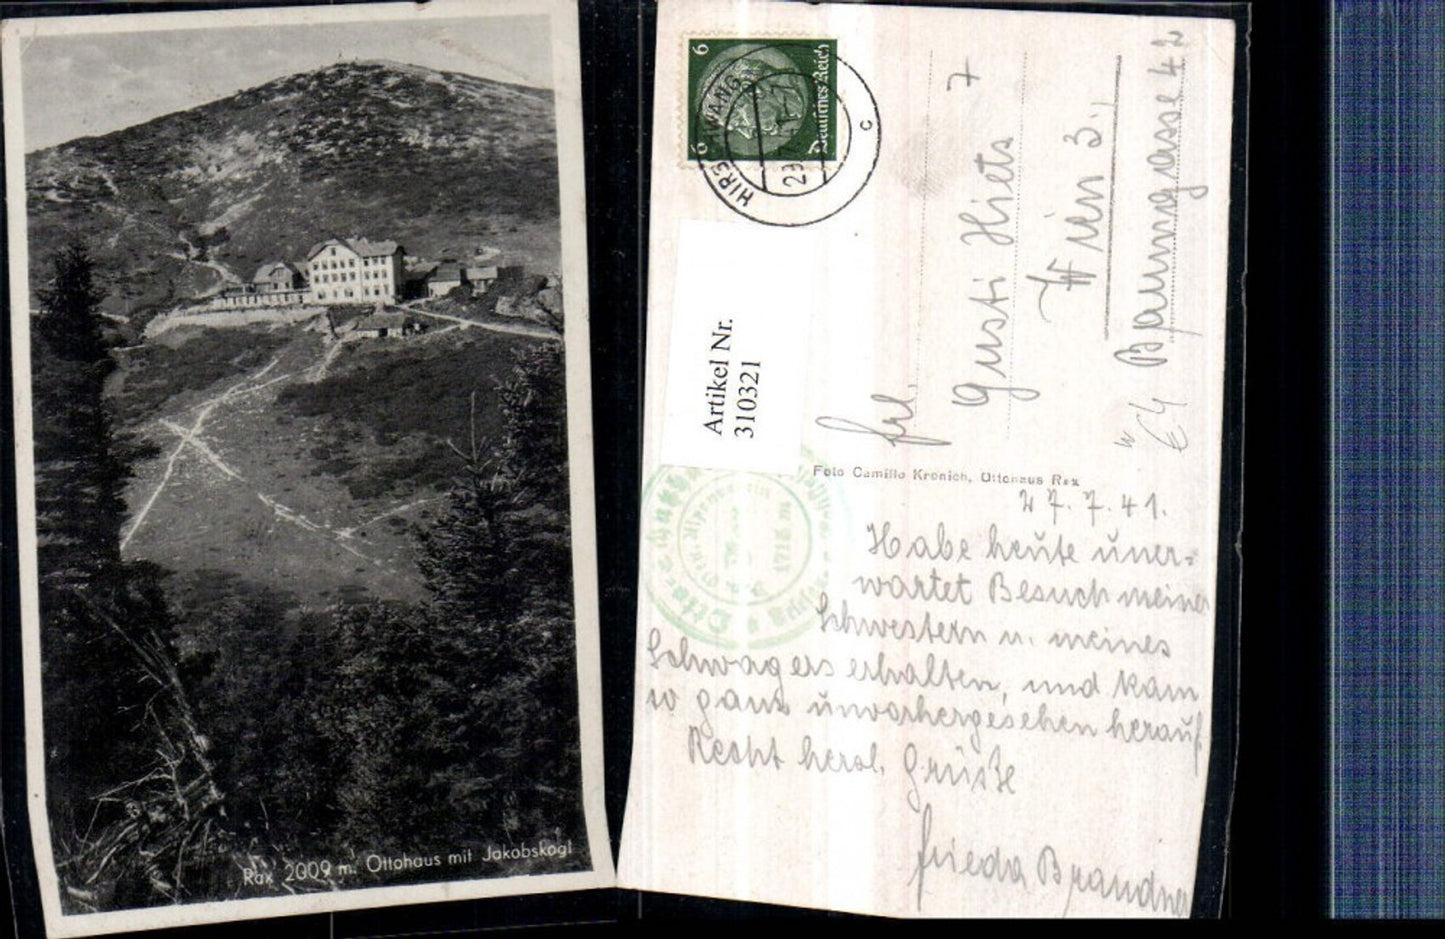 Rax 2009 m. Ottohaus mit Jakobskogl
6 6
Deutsches Reich
HIRSCHWANG
c
Artikel Nr.
310321
7
Frl.
Gusti Hiets
Wien 3.,
Baumgasse 42
Foto Camillo Kronich, Ottohaus Rax
27.7.41.
Habe heute uner-
wartet Besuch meiner
Schwestern u. meines
Schwagers erhalten, und kam
so ganz unvorhergesehen herauf.
Recht herzl. Grüße
Frieda Brandner